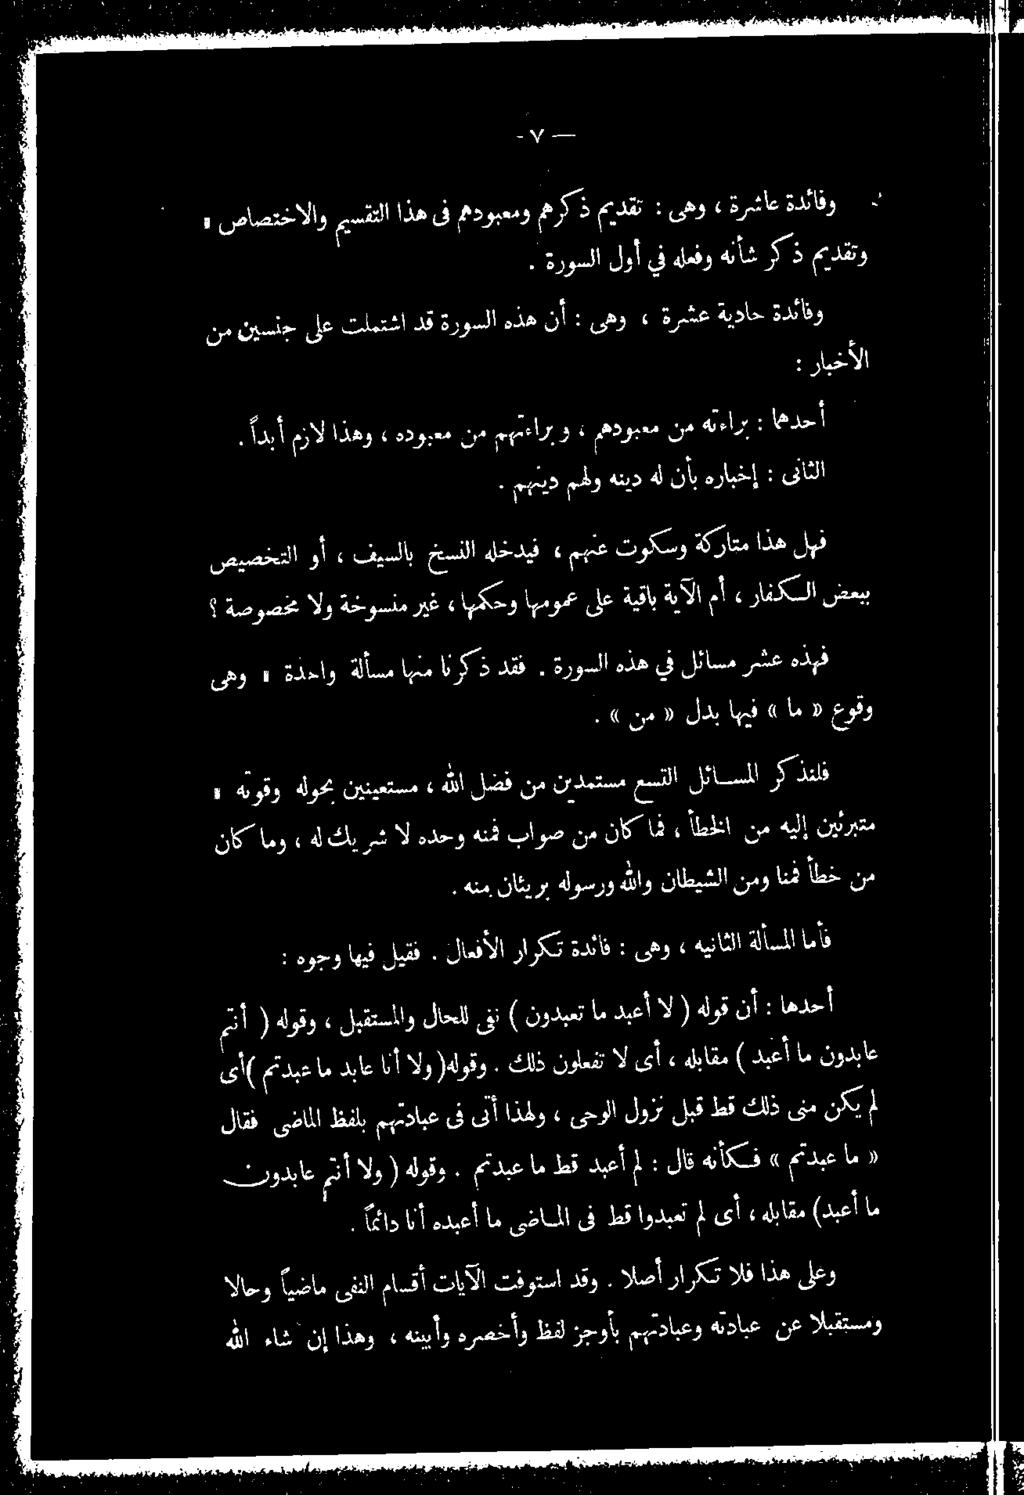 — ٧ -
وفائدة عاشرة ، وهى : تقديم ذكرهم ومعبودهم فى هذا التقسيم والاختصاص ،
وتقديم ذكر شأنه وفعله في أول السورة .
وفائدة حادية عشرة ، وهى : أن هذه السورة قد اشتملت على جنسين من
الأخبار :
أحدها : براءته من معبودهم ، وبراءتهم من معبوده ، وهذا لازم أبداً .
الثانى : إخباره بأن له دينه ولهم دينهم .
فهل هذا متاركة وسكوت عنهم ، فيدخله النسخ بالسيف ، أو التخصيص
ببعض الكفار ، أم الآية باقية على عمومها وحكمها ، غير منسوخة ولا مخصوصة ؟
فهذه عشر مسائل في هذه السورة . فقد ذكرنا منها مسألة واحدة ، وهى
وقوع « ما » فيها بدل « من » .
فلنذكر المسائل التسع مستمدين من فضل الله ، مستعينين بحوله وقوته ،
متبرئين إليه من الخطأ ، فما كان من صواب فمنه وحده لا شريك له ، وما كان
من خطأ فمنا ومن الشيطان والله ورسوله بريئان منه .
فأما المسألة الثانيه ، وهى : فائدة تكرار الأفعال . فقيل فيها وجوه :
أحدها : أن قوله ( لا أعبد ما تعبدون ) نفى للحال والمستقبل ، وقوله ( أنتم
عابدون ما أعبد ) مقابله ، أى لا تفعلون ذلك . وقوله( ولا أنا عابد ما عبدتم )أى
لم يكن منى ذلك قط قبل نزول الوحى ، ولهذا أتى فى عبادتهم بلفظ الماضى فقال
« ما عبدتم » فكأنه قال : لم أعبد قط ما عبدتم . وقوله ( ولا أنتم عابدون
ما أعبد) مقابله ، أى لم تعبدوا قط فى الماضى ما أعبده أنا دائماً .
وعلى هذا فلا تكرار أصلا . وقد استوفت الآيات أقسام النفى ماضياً وحالا
ومستقبلا عن عبادته وعبادتهم بأوجز لفظ وأخصره وأبينه ، وهذا إن شاء الله